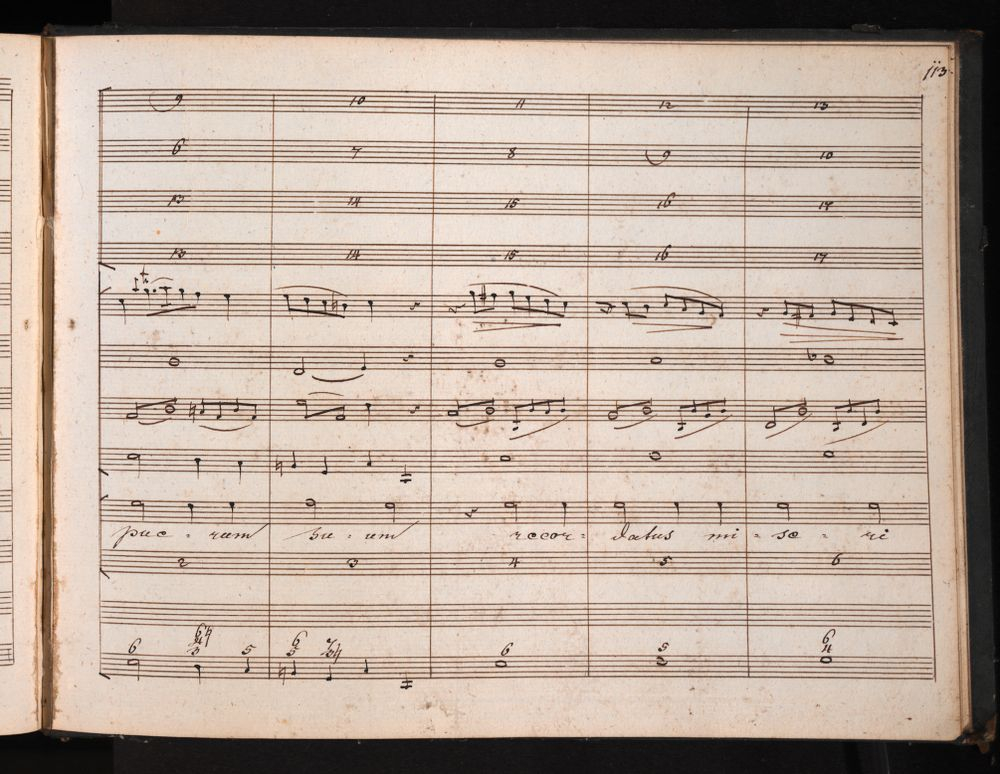 113.
9 10 11 12 13
6 7 8 9 10
13 14 15 16 17
13 14 15 16 17
tr
pue - rum su - um recor - datus mi - se - ri
2 3 4 5 6
6 5 6 6 5 6